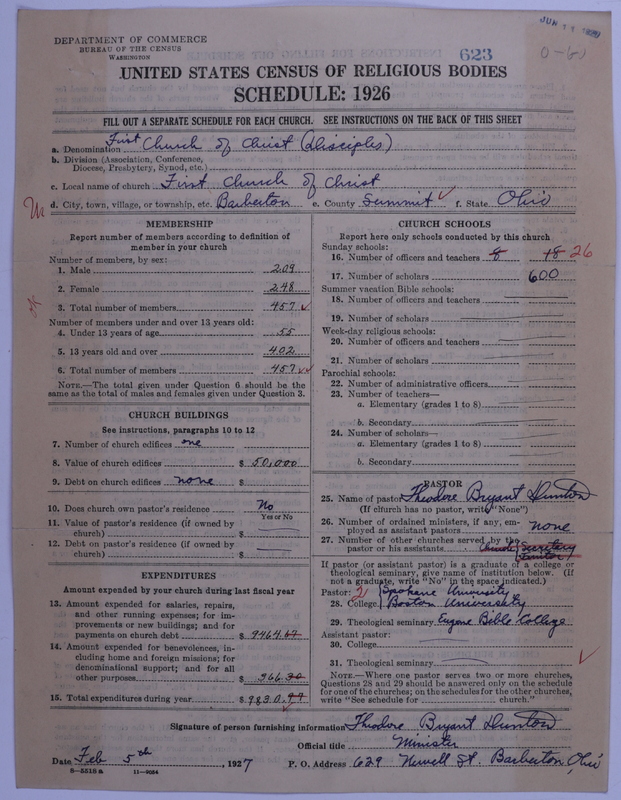 JUN 11
DEPARTMENT OF COMMERCE
BUREAU OF THE CENSUS
WASHINGTON
623
0-60
UNITED STATES CENSUS OF RELIGIOUS BODIES
SCHEDULE: 1926
FILL OUT A SEPARATE SCHEDULE FOR EACH CHURCH. SEE INSTRUCTIONS ON THE BACK OF THIS SHEET
a. Denomination First Church of Christ (Disciples)
b. Division (Association, Conference,
Diocese, Presbytery, Synod, etc.)
c. Local name of church First Church of Christ
d. City, town, village, or township, etc. Barberton e. County Summit ✓ f. State Ohio
MEMBERSHIP
Report number of members according to definition of
member in your church
Number of members, by sex:
1. Male 209
2. Female 248
3. Total number of members 457 ✓
Number of members under and over 13 years old:
4. Under 13 years of age 55
5. 13 years old and over 402
6. Total number of members 457 ✓✓
NOTE.—The total given under Question 6 should be the
same as the total of males and females given under Question 3.
CHURCH BUILDINGS
See instructions, paragraphs 10 to 12
7. Number of church edifices one
8. Value of church edifices $ 50,000
9. Debt on church edifices none $
10. Does church own pastor's residence No
Yes or No
11. Value of pastor's residence (if owned by
church) $
12. Debt on pastor's residence (if owned by
church) $
EXPENDITURES
Amount expended by your church during last fiscal year
13. Amount expended for salaries, repairs,
and other running expenses; for im-
provements or new buildings; and for
payments on church debt $ 9464.67
14. Amount expended for benevolences, in-
cluding home and foreign missions; for
denominational support; and for all
other purposes $ 366.30
15. Total expenditures during year $ 9830.97
CHURCH SCHOOLS
Report here only schools conducted by this church
Sunday schools:
16. Number of officers and teachers 8 18 26
17. Number of scholars 600
Summer vacation Bible schools:
18. Number of officers and teachers
19. Number of scholars
Week-day religious schools:
20. Number of officers and teachers
21. Number of scholars
Parochial schools:
22. Number of administrative officers
23. Number of teachers—
a. Elementary (grades 1 to 8)
b. Secondary
24. Number of scholars—
a. Elementary (grades 1 to 8)
b. Secondary
PASTOR
25. Name of pastor Theodore Bryant Hunton
(If church has no pastor, write "None")
26. Number of ordained ministers, if any, em-
ployed as assistant pastors none
27. Number of other churches served by the
pastor or his assistants Church Secretary
Janitor
If pastor (or assistant pastor) is a graduate of a college or
theological seminary, give name of institution below. (If
not a graduate, write "No" in the space indicated.)
Pastor: 2 Spokane University
28. College Boston University
29. Theological seminary Eugene Bible College
Assistant pastor:
30. College
31. Theological seminary
NOTE.—Where one pastor serves two or more churches,
Questions 28 and 29 should be answered only on the schedule
for one of the churches; on the schedules for the other churches,
write "See schedule for church."
Signature of person furnishing information Theodore Bryant Hunton
Official title Minister
Date Feb 5th, 1927 P. O. Address 629 Newell St. Barberton, Ohio
8—5518 a 11—9054